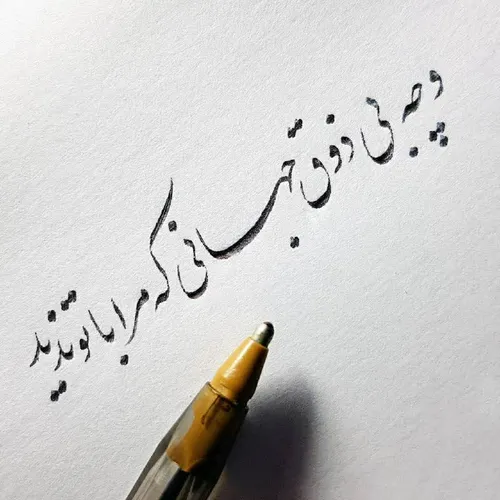 و چه بی ذوق جهانی که مرا با تو ندید